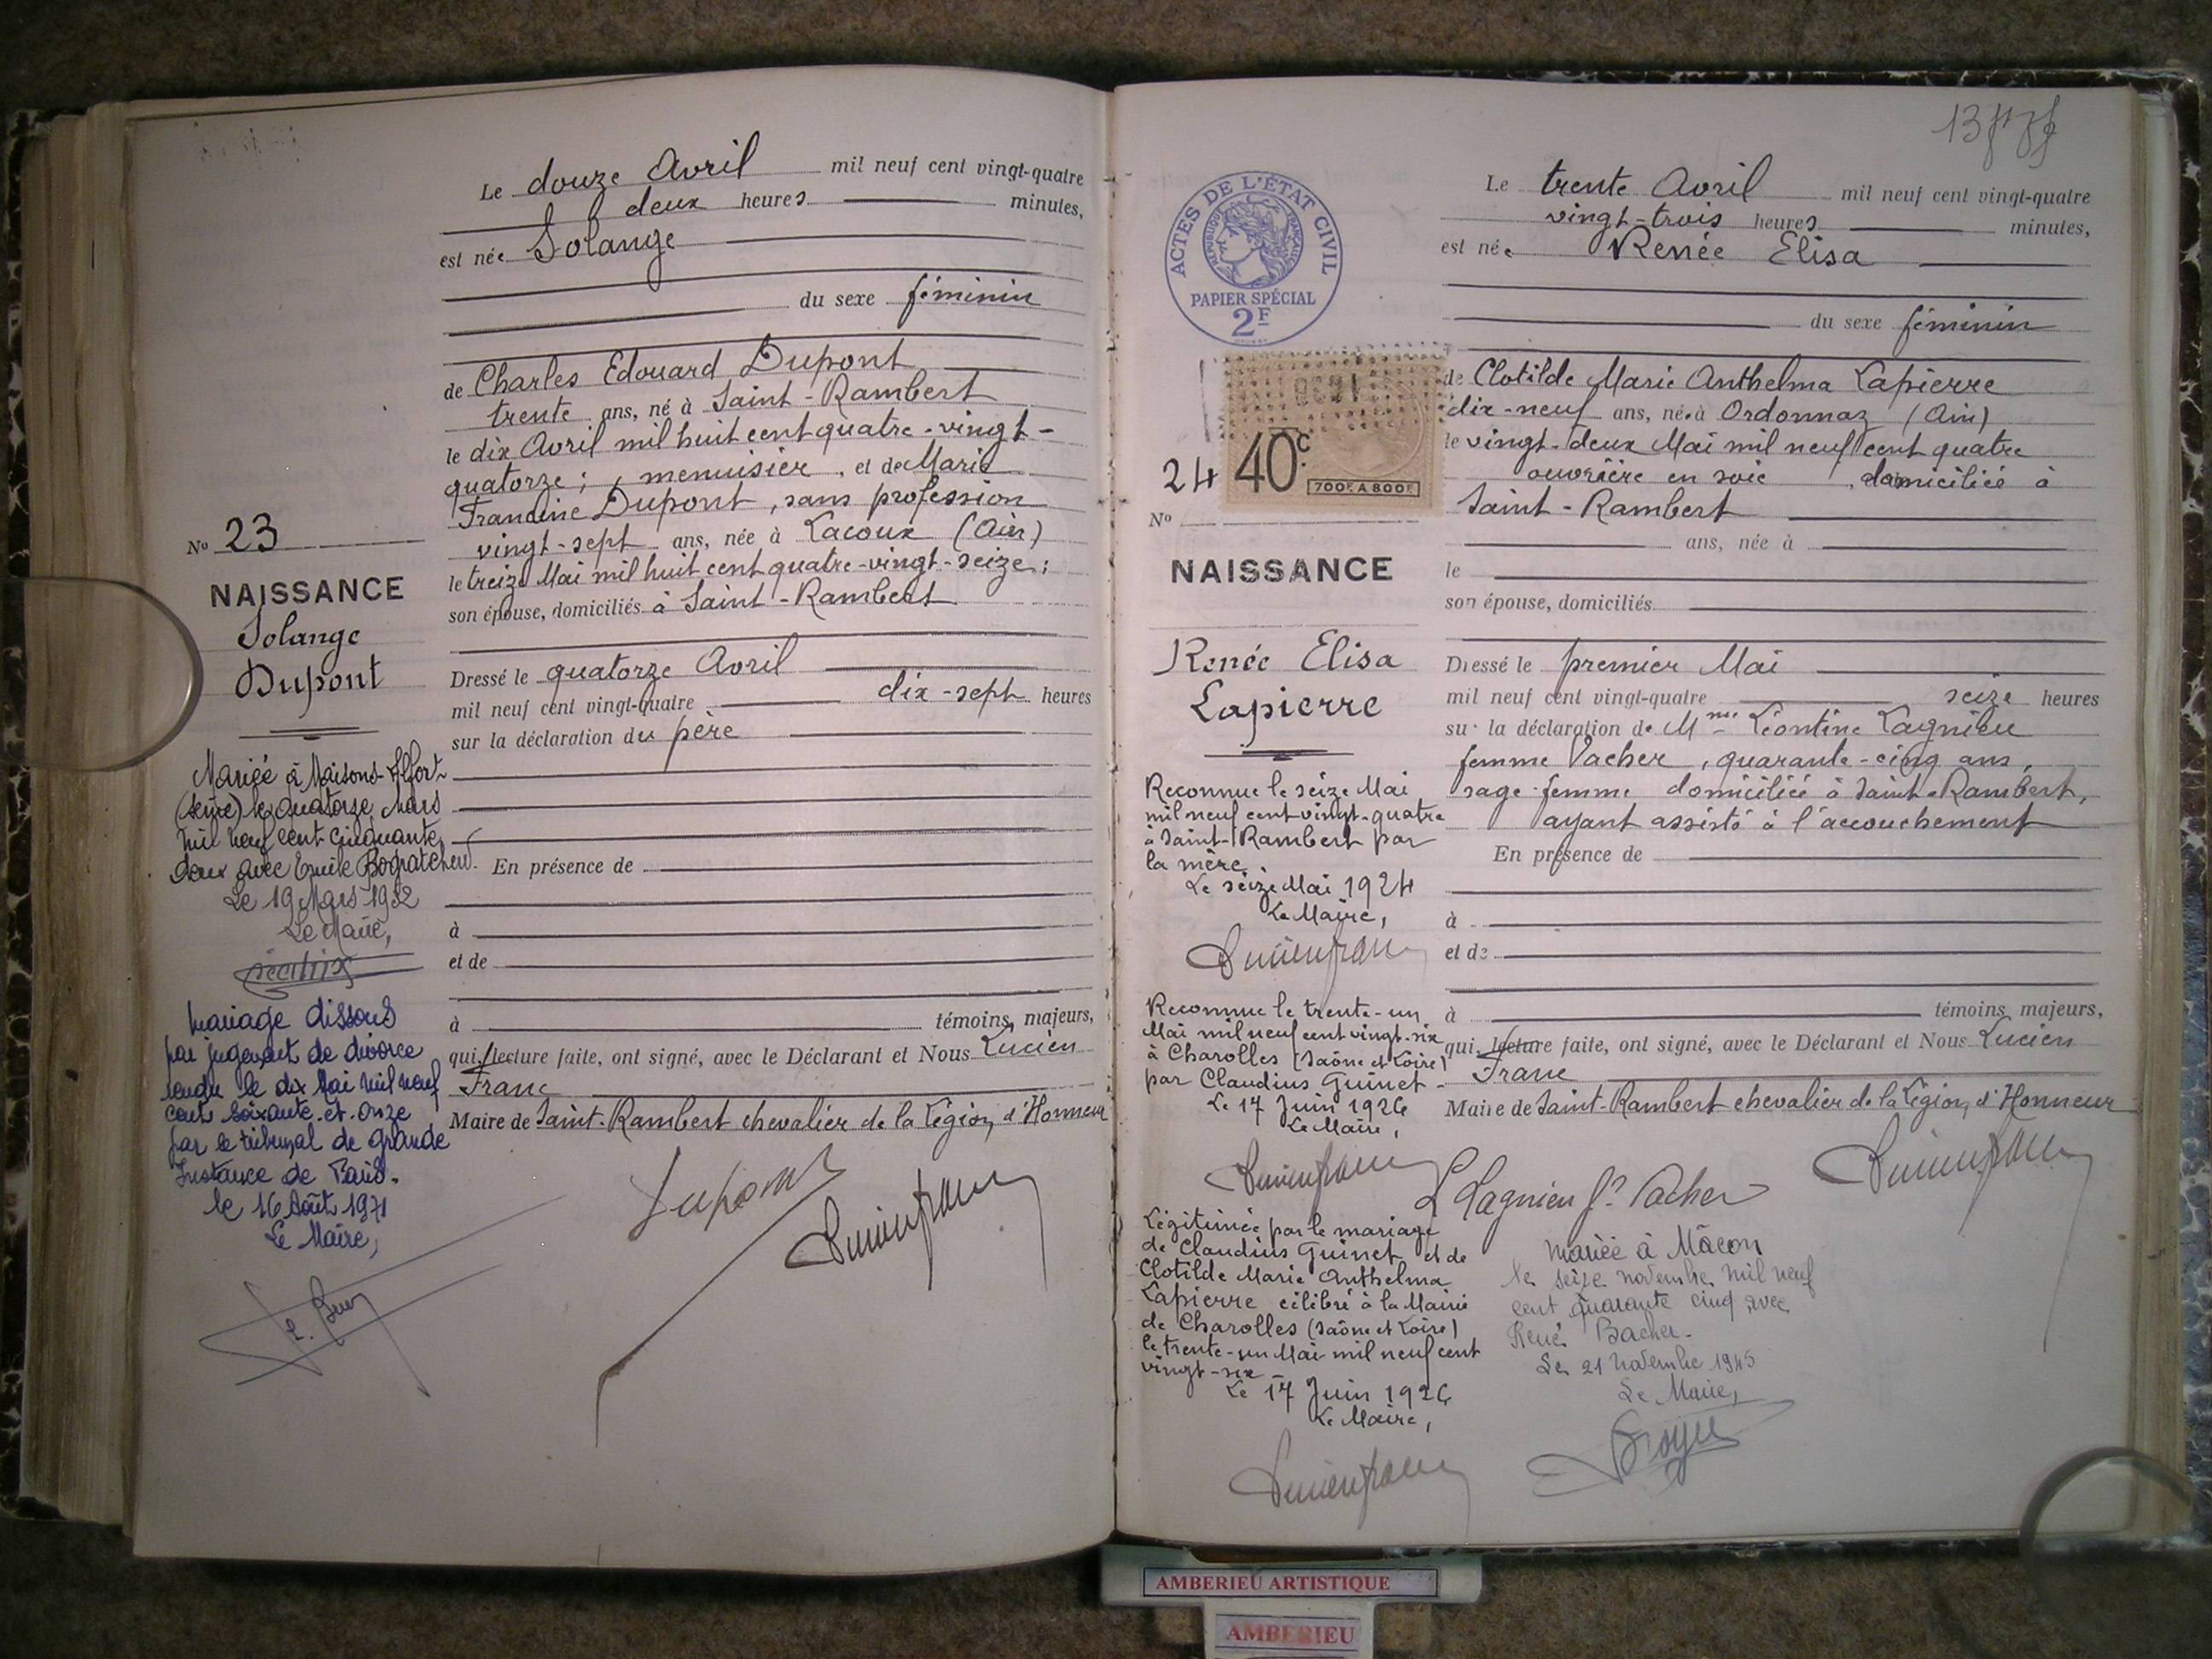 Le douze Avril mil neuf cent vingt-quatre
deux heures minutes,
est née Solange
du sexe féminin
de Charles Edouard Dupont
trente ans, né à Saint-Rambert
le dix Avril mil huit cent quatre-vingt-
quatorze; menuisier, et de Marie
Francine Dupont, sans profession
vingt-sept ans, née à Lacoux (Ain)
le treize Mai mil huit cent quatre-vingt-seize;
son épouse, domiciliés à Saint-Rambert
Dressé le quatorze Avril
mil neuf cent vingt-quatre dix-sept heures
sur la déclaration du père
En présence de
à
et de
à témoins, majeurs,
qui, lecture faite, ont signé, avec le Déclarant et Nous Lucien
Franc
Maire de Saint-Rambert chevalier de la Légion d'Honneur
Dupont
No 23
NAISSANCE
Solange
Dupont
Mariée à Maisons-Alfort
(Seine) le quatorze Mars
mil neuf cent cinquante
deux avec Emile
Le 19 Mars 1952
Le Maire,
Mariage dissous
par jugement de divorce
rendu le dix Mai mil neuf
cent soixante-et-onze
par le tribunal de Grande
Instance de Paris.
le 16 Août 1971
Le Maire,
13
ACTES DE L'ÉTAT CIVIL
RÉPUBLIQUE FRANÇAISE
PAPIER SPÉCIAL
2F
40c
700F. A 800F.
24
No
NAISSANCE
Renée Elisa
Lapierre
Reconnue le seize Mai
mil neuf cent vingt-quatre
à Saint-Rambert par
la mère.
Le seize Mai 1924
Le Maire,
Lucien Franc
Reconnue le trente-un
Mai mil neuf cent vingt-six
à Charolles (Saône et Loire)
par Claudius Guinet-
Le 17 Juin 1926
Le Maire,
Lucien Franc
Légitimée par le mariage
de Claudius Guinet et de
Clotilde Marie Anthelma
Lapierre célébré à la Mairie
de Charolles (Saône et Loire)
le trente-un Mai mil neuf cent
vingt-six
Le 17 Juin 1926
Le Maire,
Lucien Franc
Le trente Avril mil neuf cent vingt-quatre
vingt-trois heures minutes,
est née Renée Elisa
du sexe féminin
de Clotilde Marie Anthelma Lapierre
dix-neuf ans, née à Ordonnaz (Ain)
le vingt-deux Mai mil neuf cent quatre
ouvrière en soie, domiciliée à
Saint-Rambert
ans, née à
le
son épouse, domiciliés
Dressé le premier Mai
mil neuf cent vingt-quatre seize heures
sur la déclaration de Mme Léontine Lagnieu
femme Vacher, quarante-cinq ans,
sage-femme domiciliée à Saint-Rambert,
ayant assisté à l'accouchement
En présence de
à
et de
à témoins, majeurs,
qui, lecture faite, ont signé, avec le Déclarant et Nous Lucien
Franc
Maire de Saint-Rambert chevalier de la Légion d'Honneur
L Lagnieu fe Vacher
Lucien Franc
Mariée à Mâcon
le seize novembre mil neuf
cent quarante cinq avec
René Bacher.
Le 21 Novembre 1945
Le Maire,
AMBERIEU ARTISTIQUE
AMBERIEU